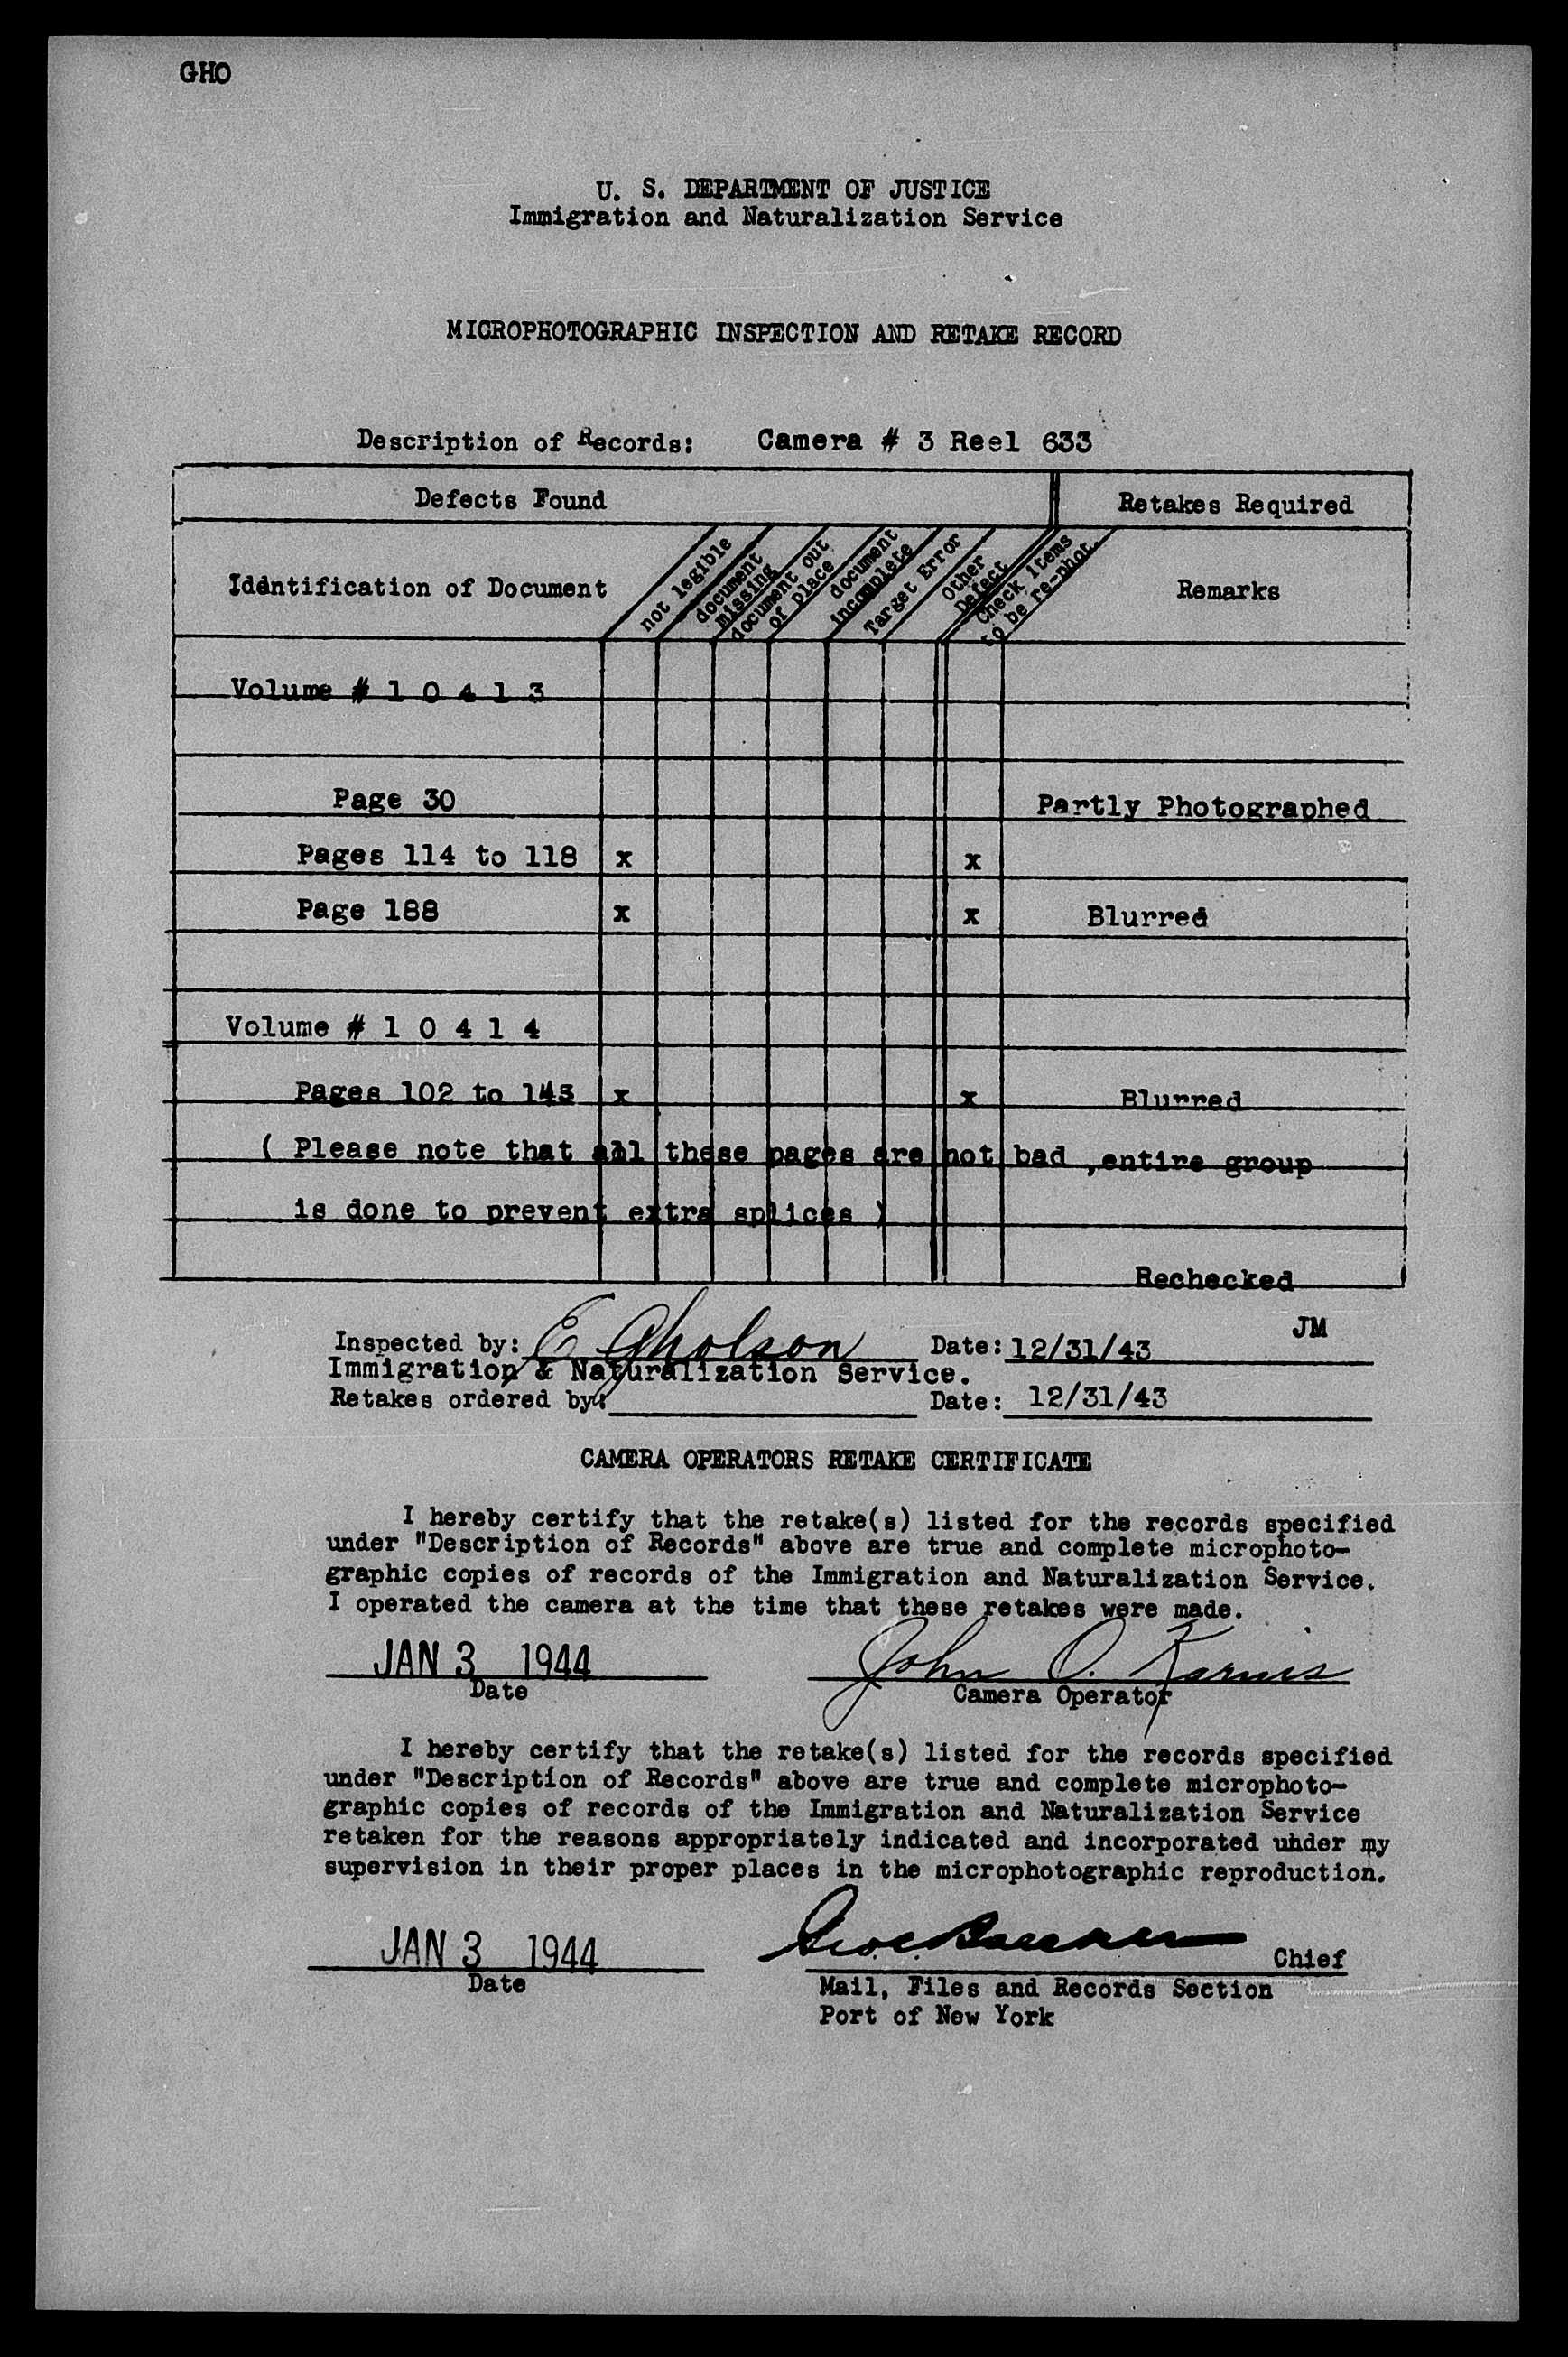 GHO
U. S. DEPARTMENT OF JUSTICE
Immigration and Naturalization Service
MICROPHOTOGRAPHIC INSPECTION AND RETAKE RECORD
Description of Records: Camera # 3 Reel 633
Defects Found Retakes Required
Identification of Document
not legible
document missing
document out of place
document incomplete
Target Error
Other Defect
Check items to be re-phot.
Remarks
Volume # 1 0 4 1 3
Page 30 Partly Photographed
Pages 114 to 118 x x
Page 188 x x Blurred
Volume # 1 0 4 1 4
Pages 102 to 143 x x Blurred
( Please note that all these pages are not bad ,entire group
is done to prevent extra splices )
Rechecked
JM
Inspected by: E Gholson Date: 12/31/43
Immigration & Naturalization Service.
Retakes ordered by: Date: 12/31/43
CAMERA OPERATORS RETAKE CERTIFICATE
I hereby certify that the retake(s) listed for the records specified
under "Description of Records" above are true and complete microphoto-
graphic copies of records of the Immigration and Naturalization Service.
I operated the camera at the time that these retakes were made.
JAN 3 1944 John O.
Date Camera Operator
I hereby certify that the retake(s) listed for the records specified
under "Description of Records" above are true and complete microphoto-
graphic copies of records of the Immigration and Naturalization Service
retaken for the reasons appropriately indicated and incorporated under my
supervision in their proper places in the microphotographic reproduction.
JAN 3 1944 Chief
Date Mail, Files and Records Section
Port of New York